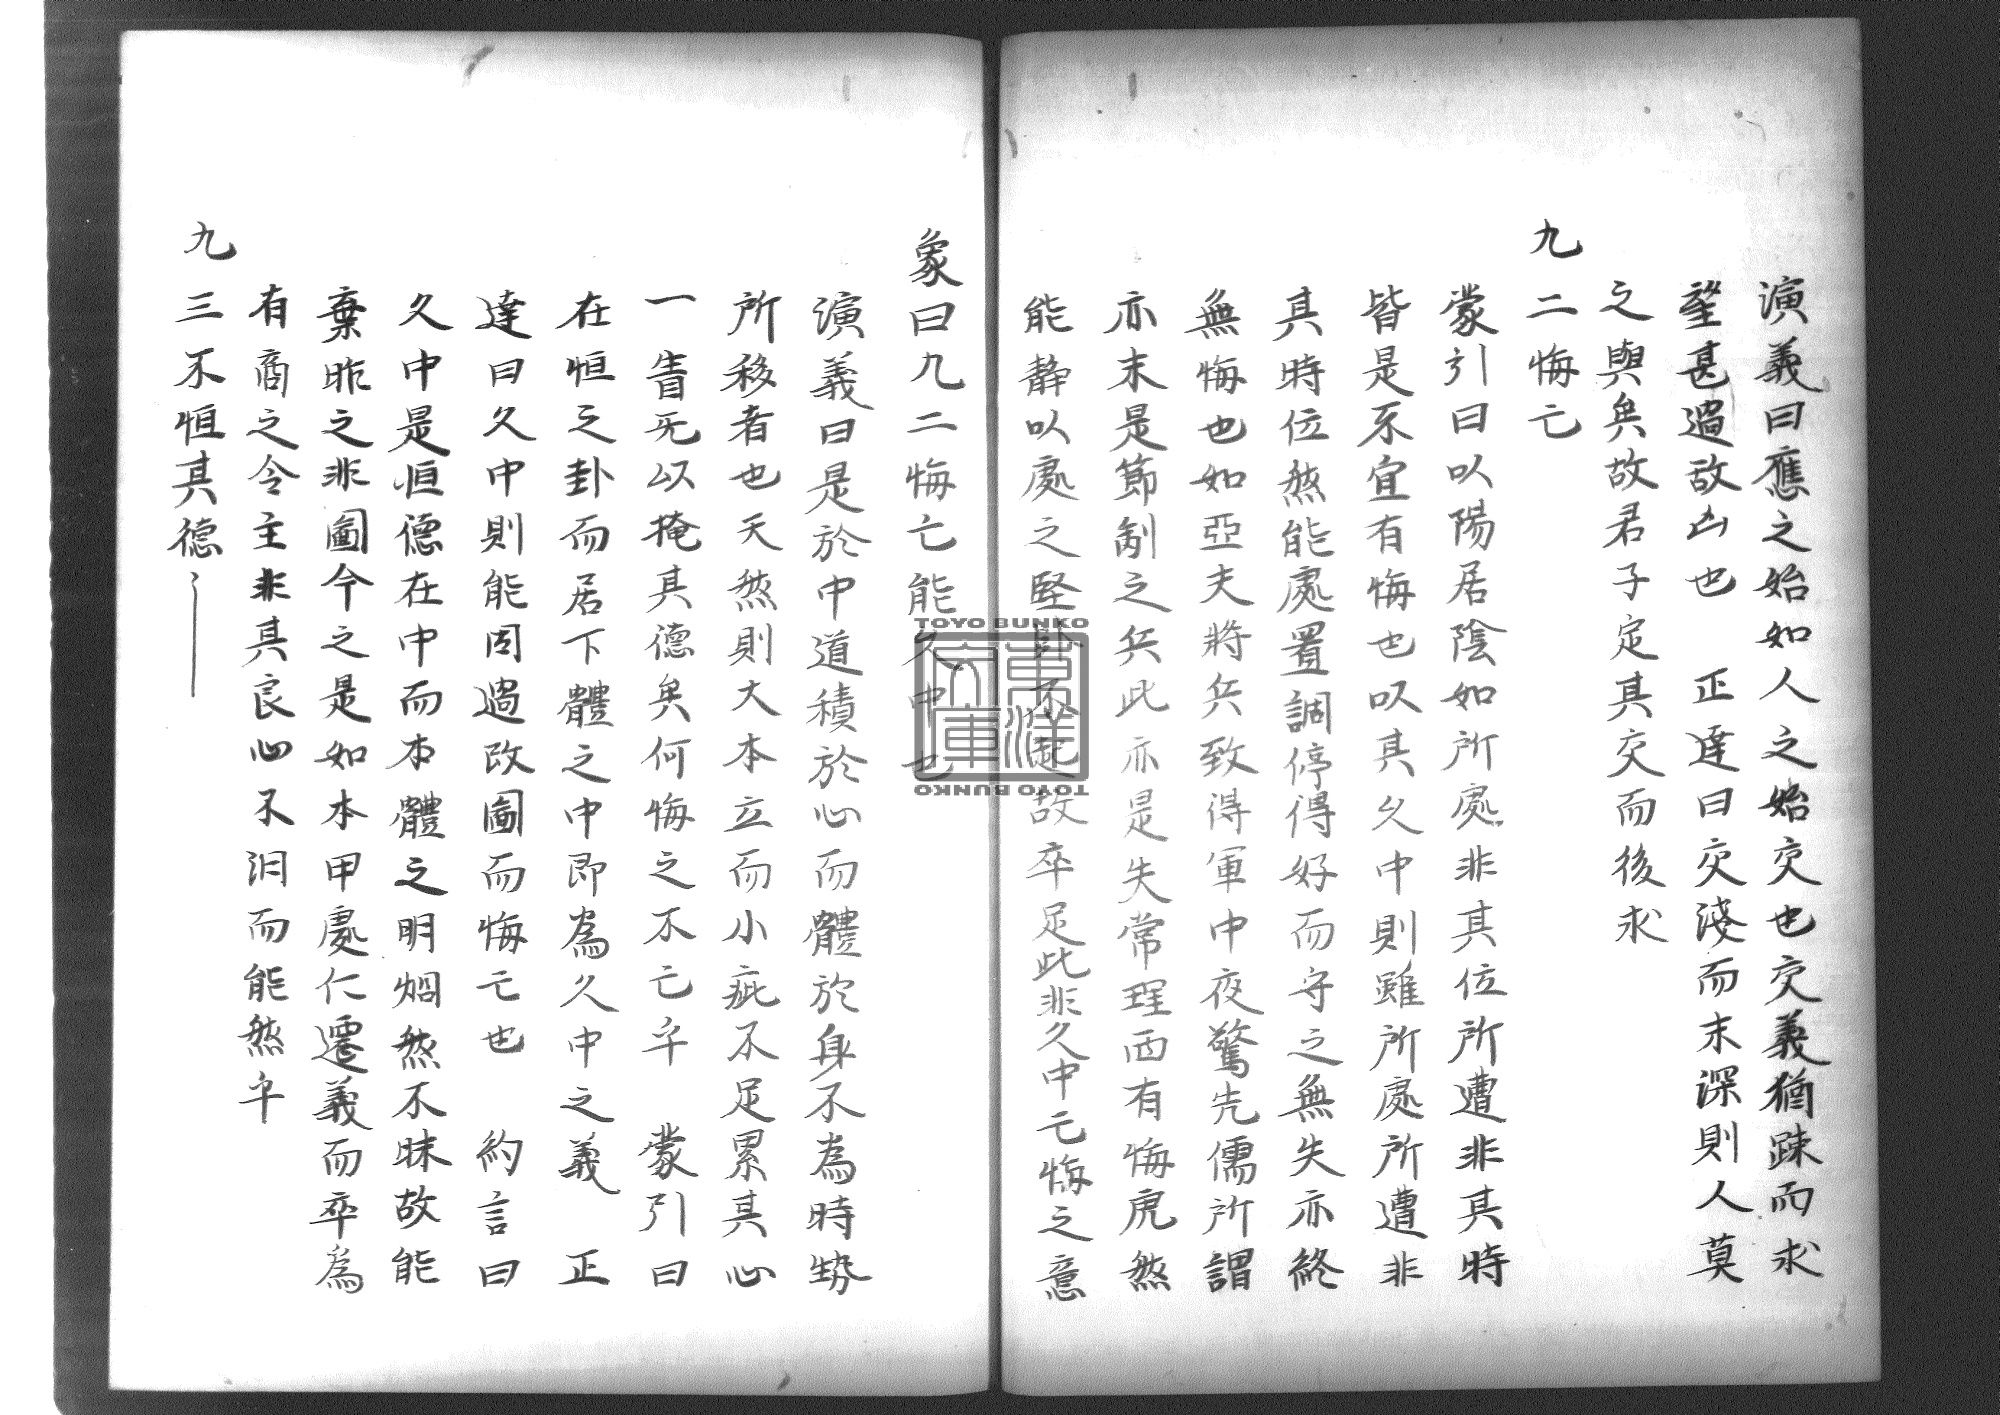 演義曰應之始如人之始交也交義猶踈而求
望甚過故凶也　正達曰交淺而未深則人莫
之與矣故君子定其交而後求
九二悔亡
蒙引曰以陽居陰如所處非其位所遭非其時
皆是不宜有悔也以其久中則雖所處所遭非
其時位然能處置調停得好而守之無失亦終
無悔也如亞夫將兵致得軍中夜驚先儒所謂
亦未是節制之兵此亦是失常理而有悔處然
能静以處之堅卧不起故卒定此非久中亡悔之意
象曰九二悔亡能久中也
演義曰是於中道積於心而體於身不為時勢
所移者也天然則大本立而小疵不足累其心
一眚旡以掩其德矣何悔之不亡乎　蒙引曰
在恒之卦而居下體之中即為久中之義　正
達曰久中則能因過改圖而悔亡也　約言曰
久中是恒德在中而本體之明烱然不昧故能
棄昨之非圖今之是如本甲處仁遷義而卒為
有商之令主非其良心不汨而能然乎
九三不恒其德
TOYO BUNKO
東洋文庫
TOYO BUNKO